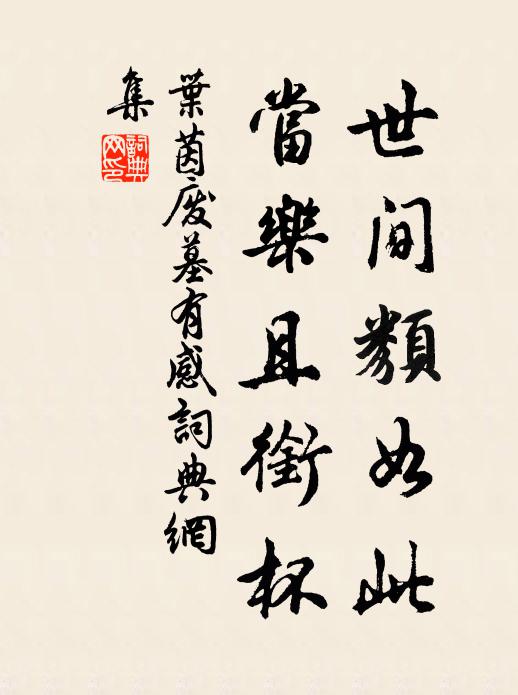 世間類如此
當樂且銜杯
葉茵廢墓有感詞典網
集
詞典網印